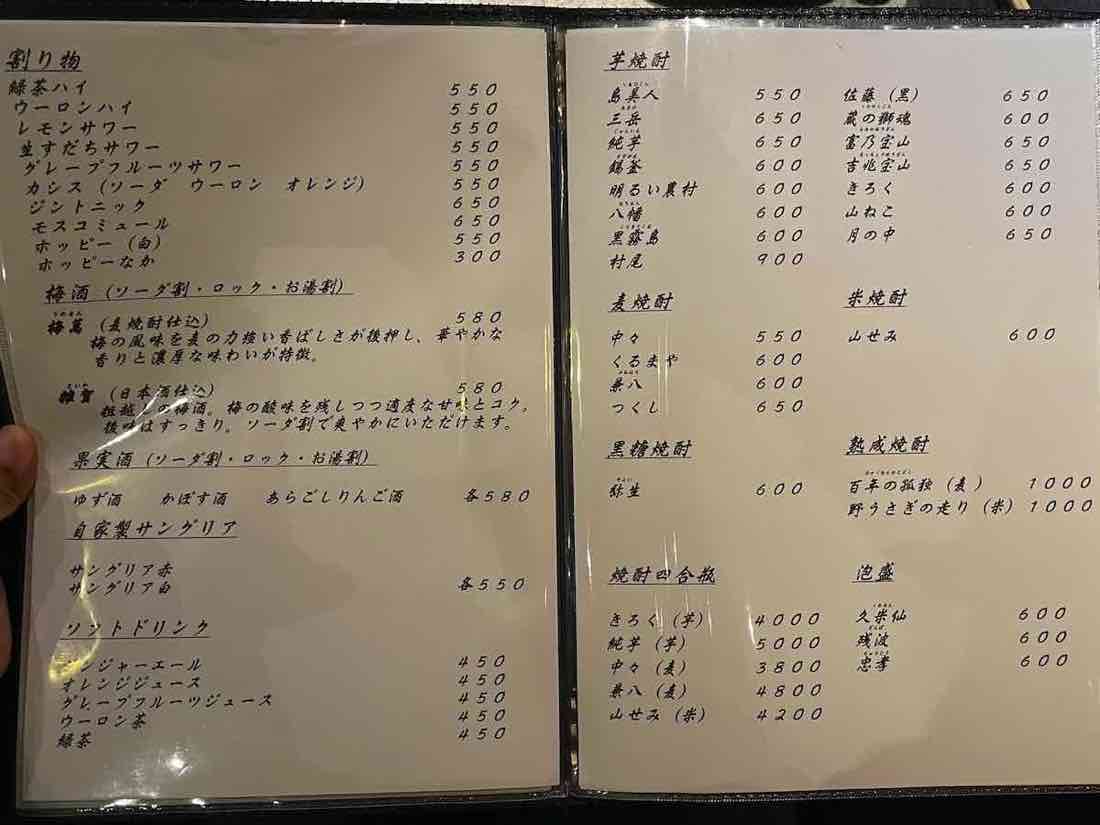 割り物
緑茶ハイ 550
ウーロンハイ 550
レモンサワー 550
生すだちサワー 550
グレープフルーツサワー 550
カシス(ソーダ ウーロン オレンジ) 550
ジントニック 650
モスコミュール 650
ホッピー(白) 550
ホッピーなか 300
梅酒(ソーダ割・ロック・お湯割)
梅萬(麦焼酎仕込) 580
梅の風味を麦の力強い香ばしさが後押し、華やかな
香りと濃厚な味わいが特徴。
雑賀(日本酒仕込) 580
粗越しの梅酒。梅の酸味を残しつつ適度な甘味とコク。
後味はすっきり。ソーダ割で爽やかにいただけます。
果実酒(ソーダ割・ロック・お湯割)
ゆず酒 かぼす酒 あらごしりんご酒 各580
自家製サングリア
サングリア赤
サングリア白 各550
ソフトドリンク
ジンジャーエール 450
オレンジジュース 450
グレープフルーツジュース 450
ウーロン茶 450
緑茶 450
芋焼酎
島美人 550
三岳 650
純芋 650
錫釜 600
明るい農村 600
八幡 600
黒霧島 600
村尾 900
佐藤(黒) 650
蔵の獅魂 600
富乃宝山 650
吉兆宝山 650
きろく 600
山ねこ 600
月の中 650
麦焼酎
中々 550
くるまや 600
兼八 600
つくし 650
米焼酎
山せみ 600
黒糖焼酎
弥生 600
熟成焼酎
百年の孤独(麦) 1000
野うさぎの走り(米) 1000
焼酎四合瓶
きろく(芋) 4000
純芋(芋) 5000
中々(麦) 3800
兼八(麦) 4800
山せみ(米) 4200
泡盛
久米仙 600
残波 600
忠孝 600